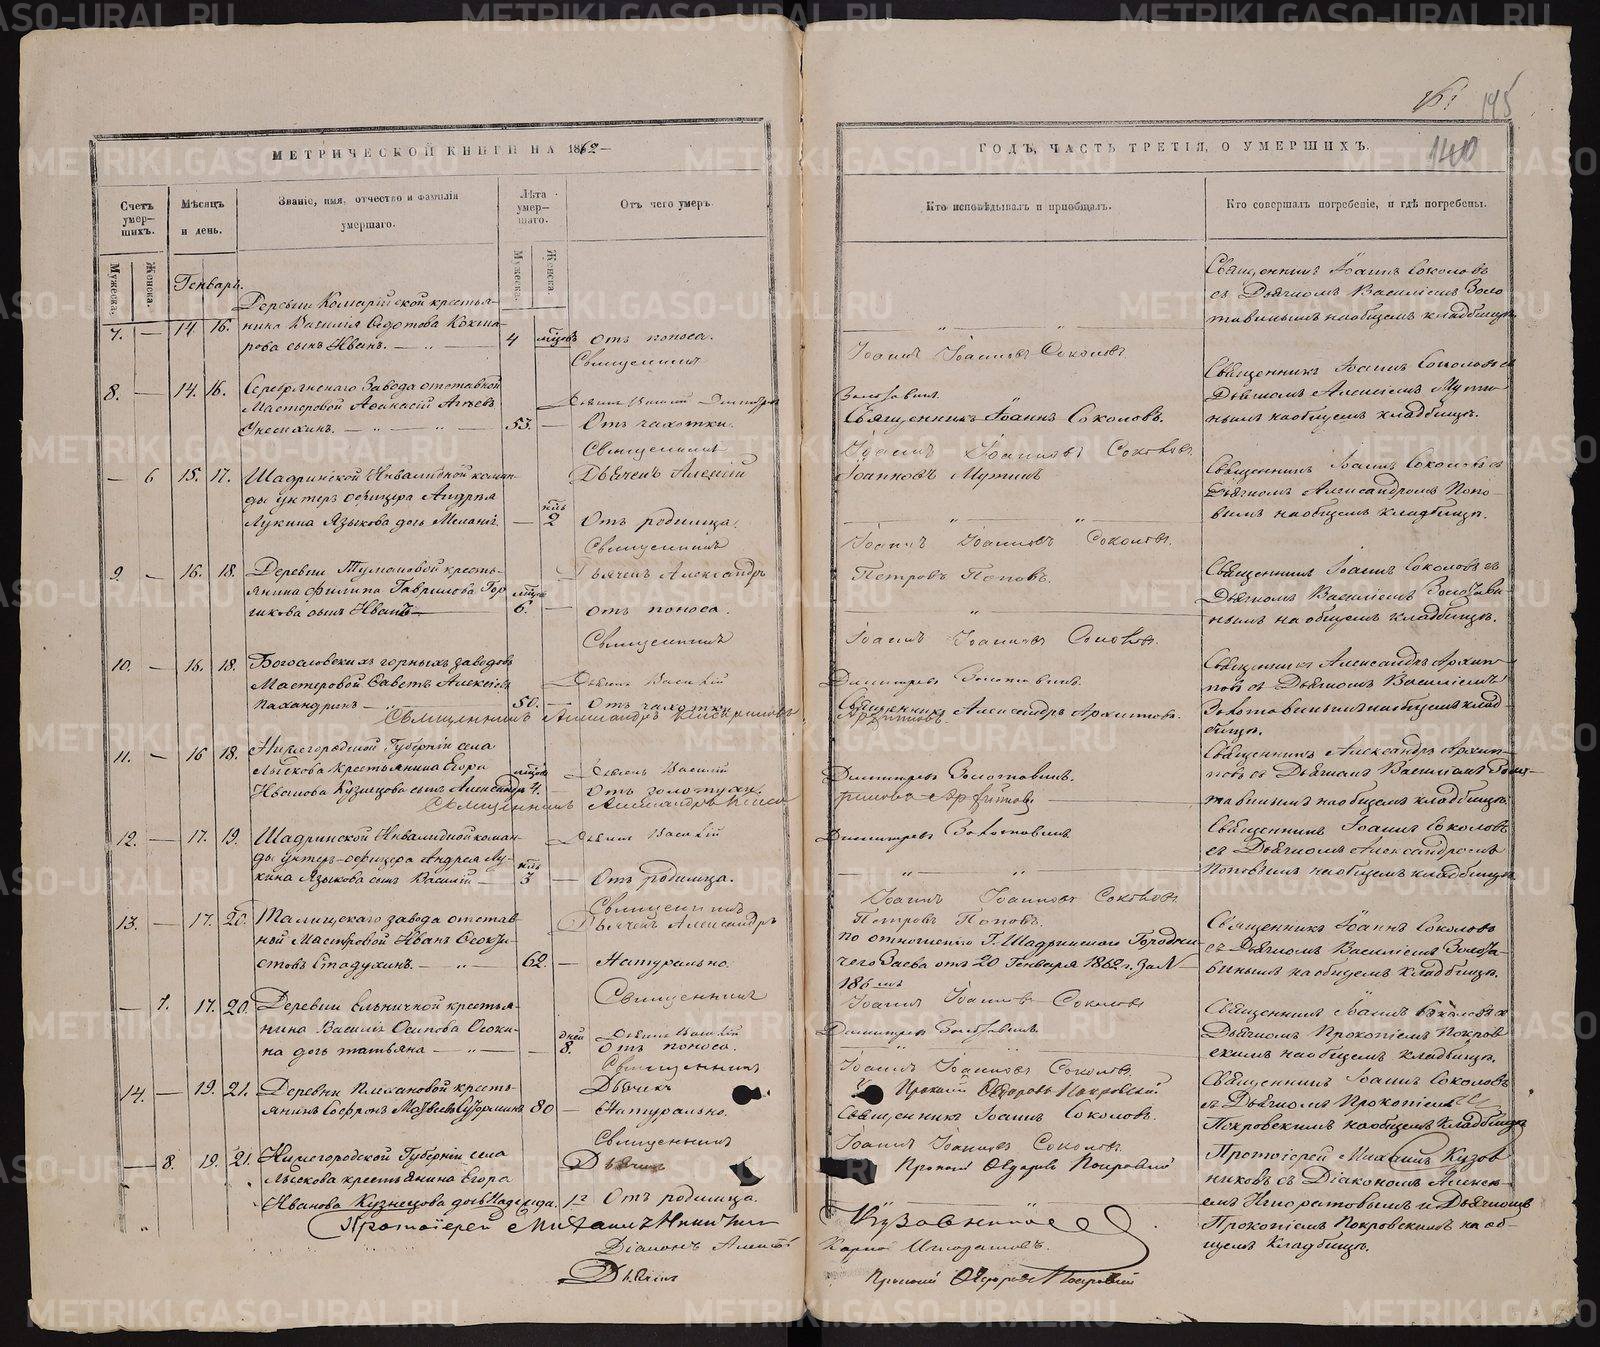 195
140
МЕТРИЧЕСКОЙ КНИГИ НА 1862
ГОДЪ, ЧАСТЬ ТРЕТІЯ, О УМЕРШИХЪ.
Счетъ умер-шихъ.
Мужеска.
Женска.
Мѣсяцъ и день.
Званіе, имя, отчество и фамилія умершаго.
Лѣта умер-шаго.
Мужеска.
Женска.
Отъ чего умеръ.
Кто исповѣдывалъ и пріобщалъ.
Кто совершалъ погребеніе, и гдѣ погребены.
Генварь.
7. — 14 16.
Деревни Комарійской крестья-
нина Василія Ѳедотова Кокша-
рова сынъ Иванъ.
4 мѣсцовъ
Отъ поноса.
Священникъ Іоаннъ Іоанновъ Соколовъ
Священникъ Іоаннъ Соколовъ
съ Дьячкомъ Василіемъ Золо
тавинымъ на общемъ кладбищѣ
8. — 14. 16.
Серебрянскаго Завода отставной
Мастеровой Аѳанасій
53. —
Отъ чахотки.
Дьячекъ Василій Димитровъ Золотавинъ
Священникъ Іоаннъ Соколовъ.
Священникъ Іоаннъ Іоанновъ Соколовъ
Священникъ Іоаннъ Соколовъ съ
Дьячкомъ Алексіемъ Мути-
нымъ на общемъ кладбищѣ.
— 6 15. 17.
Шадринской Инвалидной коман-
ды унтеръ офицера Андрея
Лукина Языкова дочь
2
Отъ родимца.
Дьячекъ Алексій Іоанновъ Мутинъ
Священникъ Іоаннъ Іоанновъ Соколовъ.
Священникъ Іоаннъ Соколовъ съ
Дьячкомъ Александромъ Попо-
вымъ на общемъ кладбищѣ.
9. — 16. 18.
Деревни Тумановой кресть-
янина Филипа Гаврилова Гор
шкова сынъ Иванъ —
6. —
отъ поноса.
Дьячекъ Александръ Петровъ Поповъ.
Священникъ Іоаннъ Іоанновъ Соколовъ.
Священникъ Іоаннъ Соколовъ съ
Дьячкомъ Василіемъ Золотави-
нымъ на общемъ кладбищѣ.
10. — 16. 18.
Богословскихъ горныхъ заводовъ
Мастеровой Алексѣевъ
50. —
Отъ чахотки
Дьячекъ Василій Димитровъ Золотавинъ.
Священникъ Александръ Архиповъ.
Священникъ Александръ Архи
повъ съ Дьячкомъ Василіемъ
Золотавинымъ на общемъ клад-
бищѣ.
11. — 16 18.
Нижегородской Губерніи села
Лыскова крестьянина Егора
Иванова Кузнецова сынъ Александръ 4.
Отъ золотухи.
Дьячекъ Василій Димитровъ Золотавинъ.
Священникъ Александръ Архиповъ
Священникъ Александръ Архи-
повъ съ Дьячкомъ Василіемъ Золо-
тавинымъ на общемъ кладбищѣ
12. — 17. 19.
Шадринской Инвалидной коман-
ды унтеръ-офицера Андрея Лу-
кина Языкова сынъ Василій —
3 —
Отъ родимца.
Дьячекъ Василій Димитровъ Золотавинъ
Священникъ Іоаннъ Іоанновъ Соколовъ
Священникъ Іоаннъ Соколовъ
съ Дьячкомъ Александромъ
Поповымъ на общемъ кладбищѣ
13. — 17. 20.
Талицкаго завода отстав-
ной Мастеровой Иванъ
Стадухинъ.
62. —
Натурально.
Дьячекъ Александръ Петровъ Поповъ.
по отношенію Г. Шадринскаго Городни-
чаго отъ 20 Генваря 1862 г. за №
186
Священникъ Іоаннъ Іоанновъ Соколовъ
Священникъ Іоаннъ Соколовъ
съ Дьячкомъ Василіемъ Золота-
винымъ на общемъ кладбищѣ.
— 7. 17. 20.
Деревни Ельничной крестья-
нина Василія Осипова
на дочь Татьяна
дней 8.
Отъ поноса.
Дьячекъ Василій Димитровъ Золотавинъ
Священникъ Іоаннъ Іоанновъ Соколовъ
Священникъ Іоаннъ Соколовъ съ
Дьячкомъ Прокопіемъ Покров
скимъ на общемъ кладбищѣ.
14. — 19. 21.
Деревни кресть-
янинъ Софронъ 80
— Натурально.
Дьячекъ Прокопій Ѳедоровъ Покровскій
Священникъ Іоаннъ Соколовъ.
Священникъ Іоаннъ Іоанновъ Соколовъ.
Священникъ Іоаннъ Соколовъ
съ Дьячкомъ Прокопіемъ
Покровскимъ на общемъ кладбищѣ
— 8. 19. 21.
Нижегородской Губерніи села
Лыскова крестьянина Егора
Иванова Кузнецова дочь Надежда.
Отъ родимца.
Дьячекъ Прокопій Ѳедоровъ Покровскій
Протоіерей Михаилъ
Протоіерей Михаилъ Кузов
никовъ съ Діакономъ Алексі-
емъ и Дьячкомъ
Прокопіемъ Покровскимъ на об-
щемъ кладбищѣ.
Діаконъ Алексій
Дьячекъ Прокопій Ѳедоровъ Покровскій
METRIKI.GASO-URAL.RU